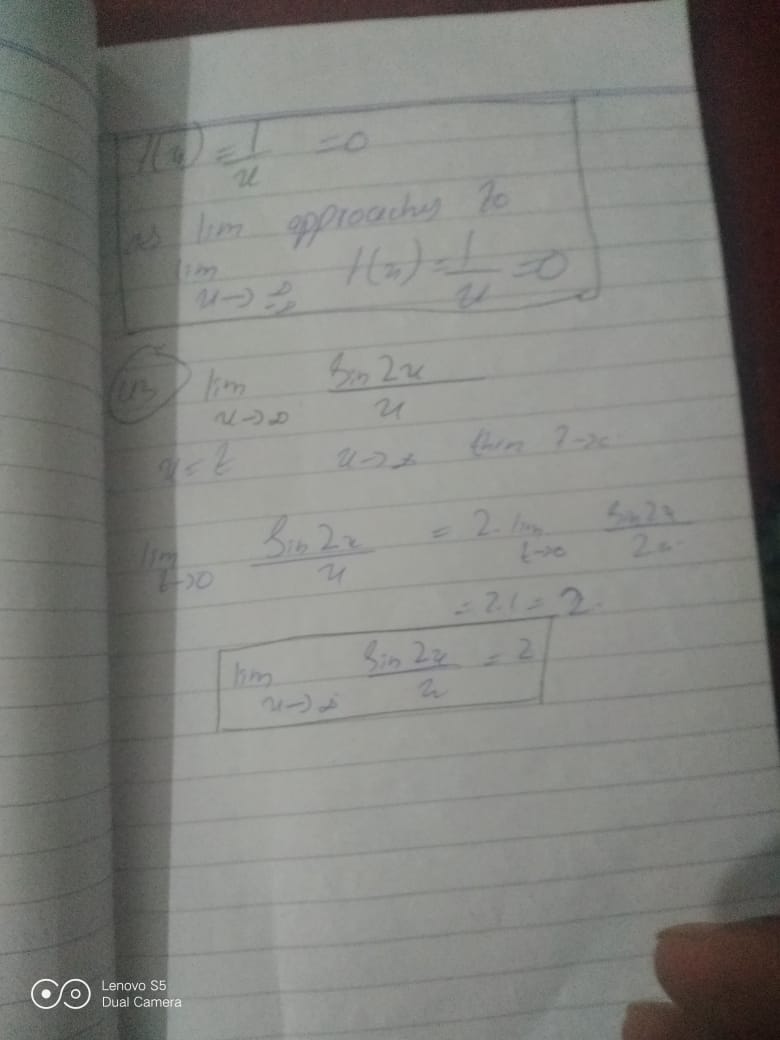 f(x) = 1/x = 0
as lim approaches to
lim x→ f(x) = 1/x = 0
lim x→∞ Sin 2x / x
x = t x→∞ then
lim t→0 Sin 2x / x = 2. lim t→0 Sin 2x / 2x
= 2.1 = 2.
lim x→∞ Sin 2x / x = 2
Lenovo S5
Dual Camera